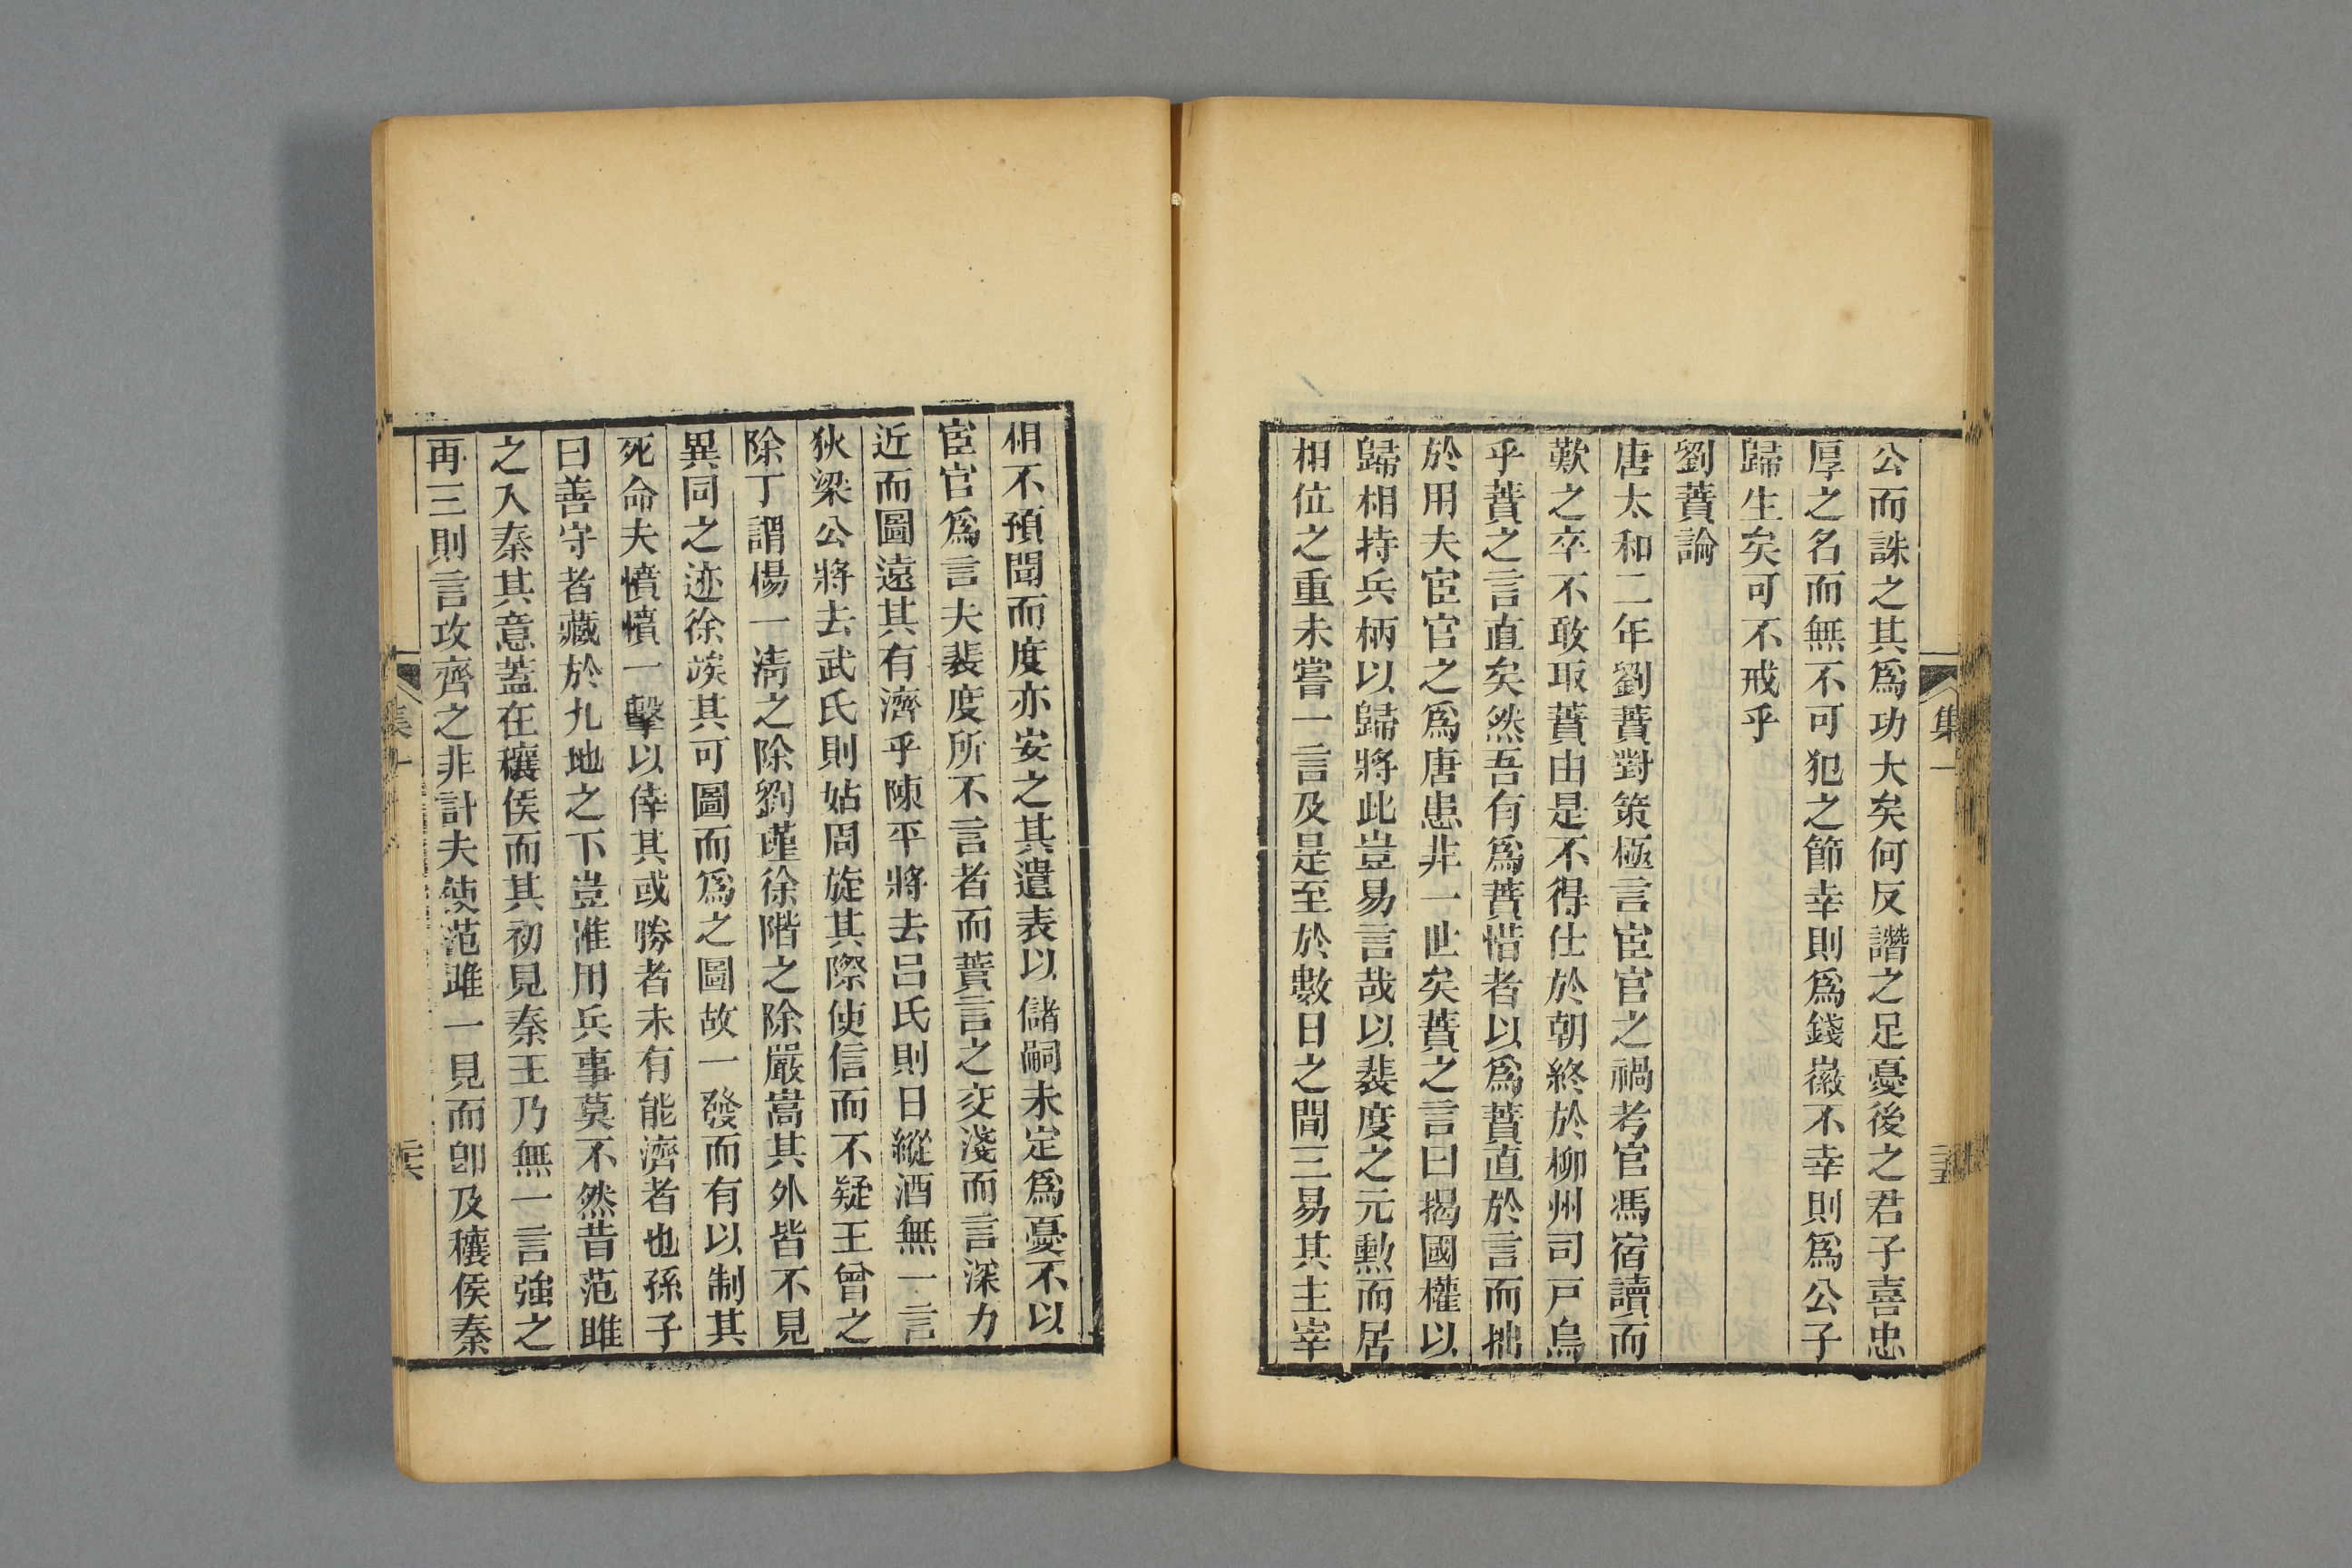 集一
公而誅之其爲功大矣何反譖之足憂後之君子喜忠
厚之名而無不可犯之節幸則爲錢徽不幸則爲公子
歸生矣可不戒乎
劉蕡論
唐太和二年劉蕡對策極言宦官之禍考官馮宿讀而
歎之卒不敢取蕡由是不得仕於朝終於柳州司戸烏
乎蕡之言直矣然吾有爲蕡惜者以爲蕡直於言而拙
於用夫宦官之爲唐患非一世矣蕡之言曰揭國權以
歸相持兵柄以歸將此豈易言哉以裴度之元勲而居
相位之重未嘗一言及是至於數日之間三易其主宰
相不預聞而度亦安之其遺表以儲嗣未定爲憂不以
宦官爲言夫裴度所不言者而蕡言之交淺而言深力
近而圖遠其有濟乎陳平將去呂氏則日縱酒無一言
狄梁公將去武氏則姑周旋其際使信而不疑王曾之
除丁謂楊一淸之除劉瑾徐階之除嚴嵩其外皆不見
異同之迹徐竢其可圖而爲之圖故一發而有以制其
死命夫憤憤一擊以倖其或勝者未有能濟者也孫子
曰善守者藏於九地之下豈惟用兵事莫不然昔范雎
之入秦其意蓋在穰侯而其初見秦王乃無一言強之
再三則言攻齊之非計夫使范雎一見而卽及穰侯秦